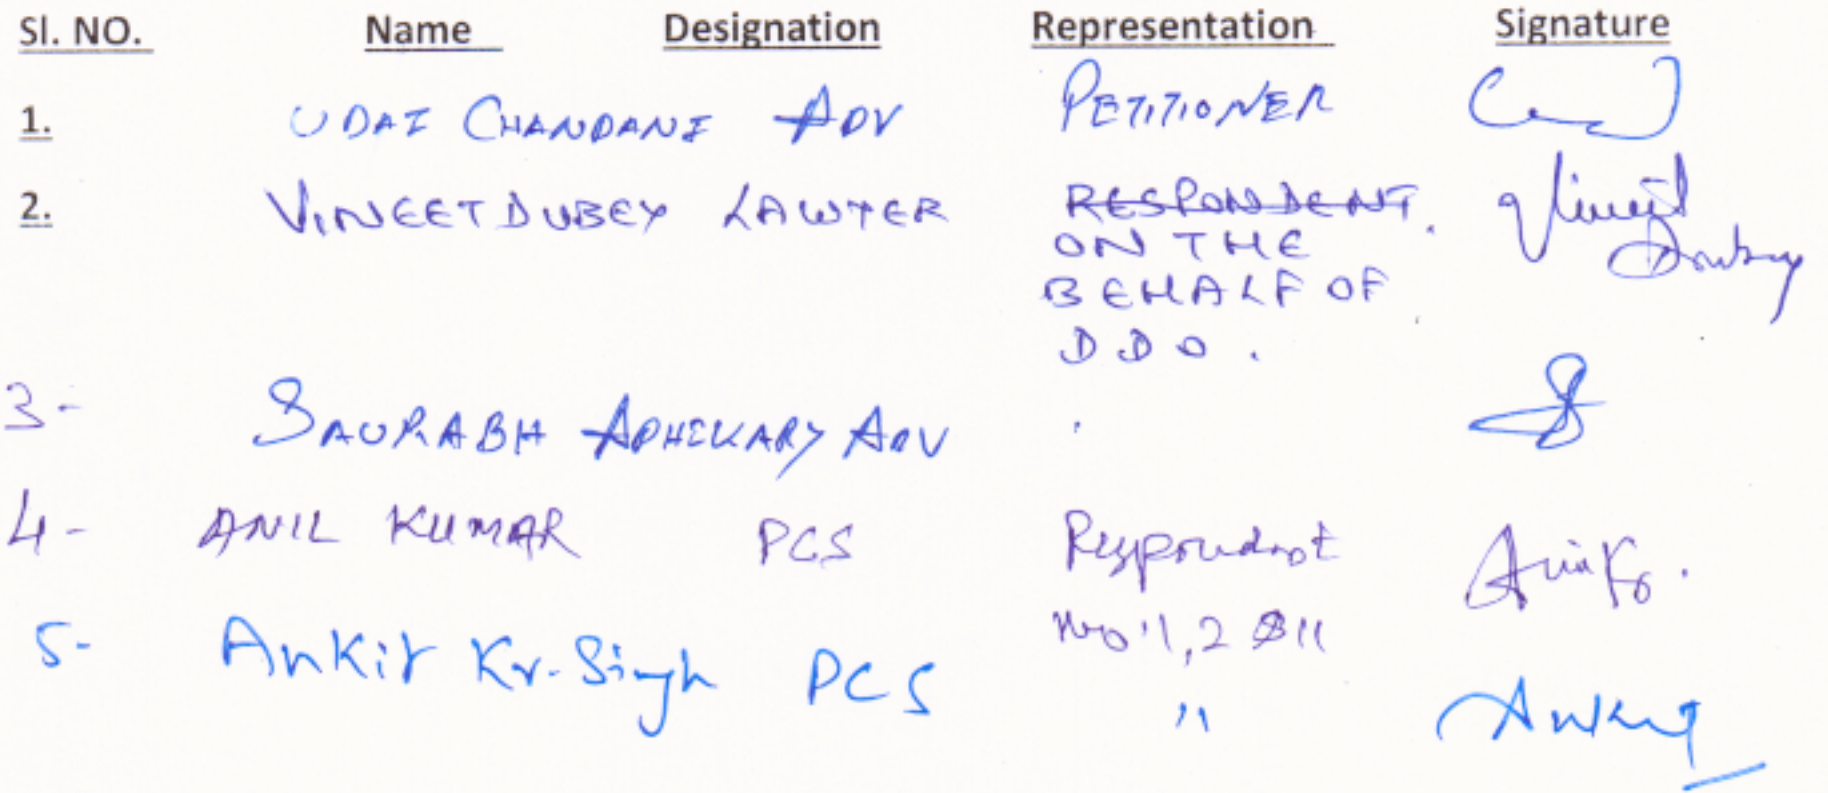 Sl. NO. Name Designation Representation Signature
1. UDAI CHANDANI ADV PETITIONER
2. VINEET DUBEY LAWYER RESPONDENT. Vineet
ON THE Dubey
BEHALF OF
DDO.
3- SAURABH ADHIKARY ADV
4- ANIL KUMAR PCS Respondent
No 1, 2 & 11
5- Ankit Kr. Singh PCS " Ankit